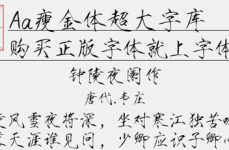 Aa瘦金体超大字库
购买正版字体就上字体
钟陵夜阑作
唐代.韦庄
风雪夜将深，坐对寒江独苦
天涯谁见问，少卿应识子卿心